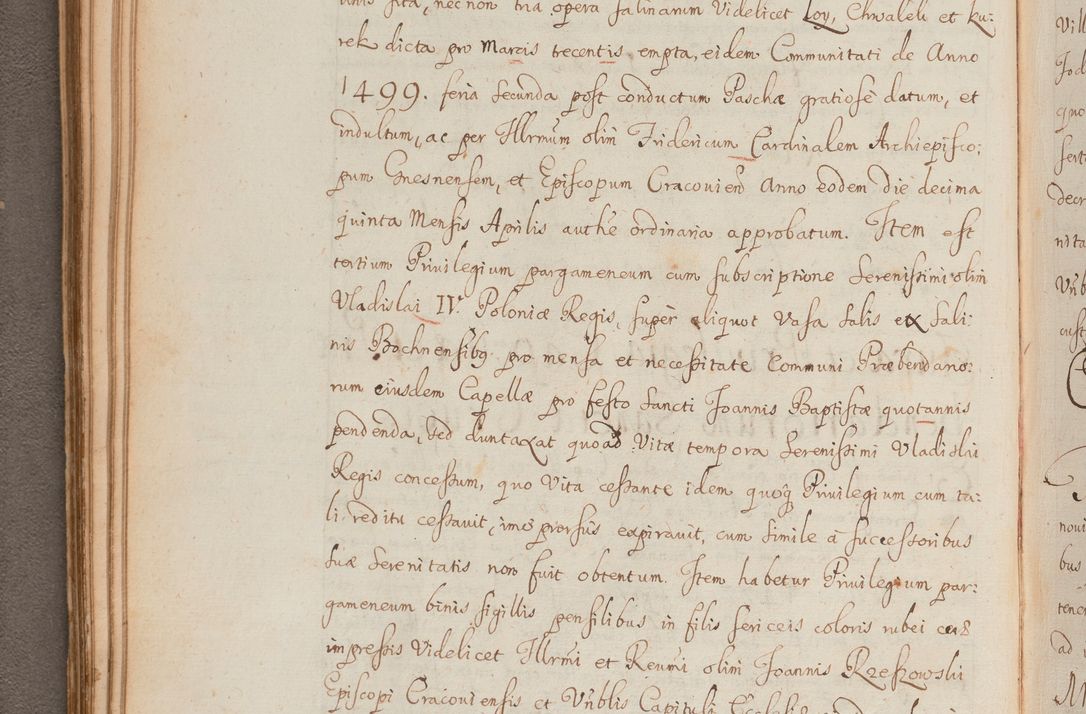 sita, nec non tria opera salinarum Videlicet Loy, Chwaleb et ku:
rek dicta pro Marcis trecentis empta, eidem Communitati de Anno
1499. feria secunda post conductum Paschæ gratiosè datum, et
indultum, ac per Illrmũm olim Fridericum Cardinalem Archiepisco:
pum Gnesnensem, et Episcopum Cracovien Anno eodem die decima
quinta Mensis Aprilis authẽ ordinaria approbatum. Item est
tertium Privilegium pargameneum cum subscriptione Serenissimi olim
Vladislai IV. Poloniæ Regis, super aliquot Vasa Salis ex Sali:
nis Bochnensibq pro mensa et necessitate Communi Præbendario:
rum eiusdem Capellæ pro festo Sancti Joannis Baptistæ quotannis
pendenda, sed duntaxat quoad Vitæ tempora Serenissimi Vladislai
Regis concessum, quo Vita cessante idem quoq Privilegium cum ta:
li reditu cessavit, imo prorsùs expiravit, cum simile à successoribus
suæ Serenitatis non fuit obtentum. Item habetur Privilegium par:
gameneum binis sigillis pensilibus in filis sericeis coloris rubei
impressis Videlicet Illrmĩ et Reumĩ olim Joannis Rzeszowski
Episcopi Cracoviensis et Vñblis Capituli
Vill
Jod
quo
sert
decr
nita
Vñb
cust
novi
bus
tener
ad